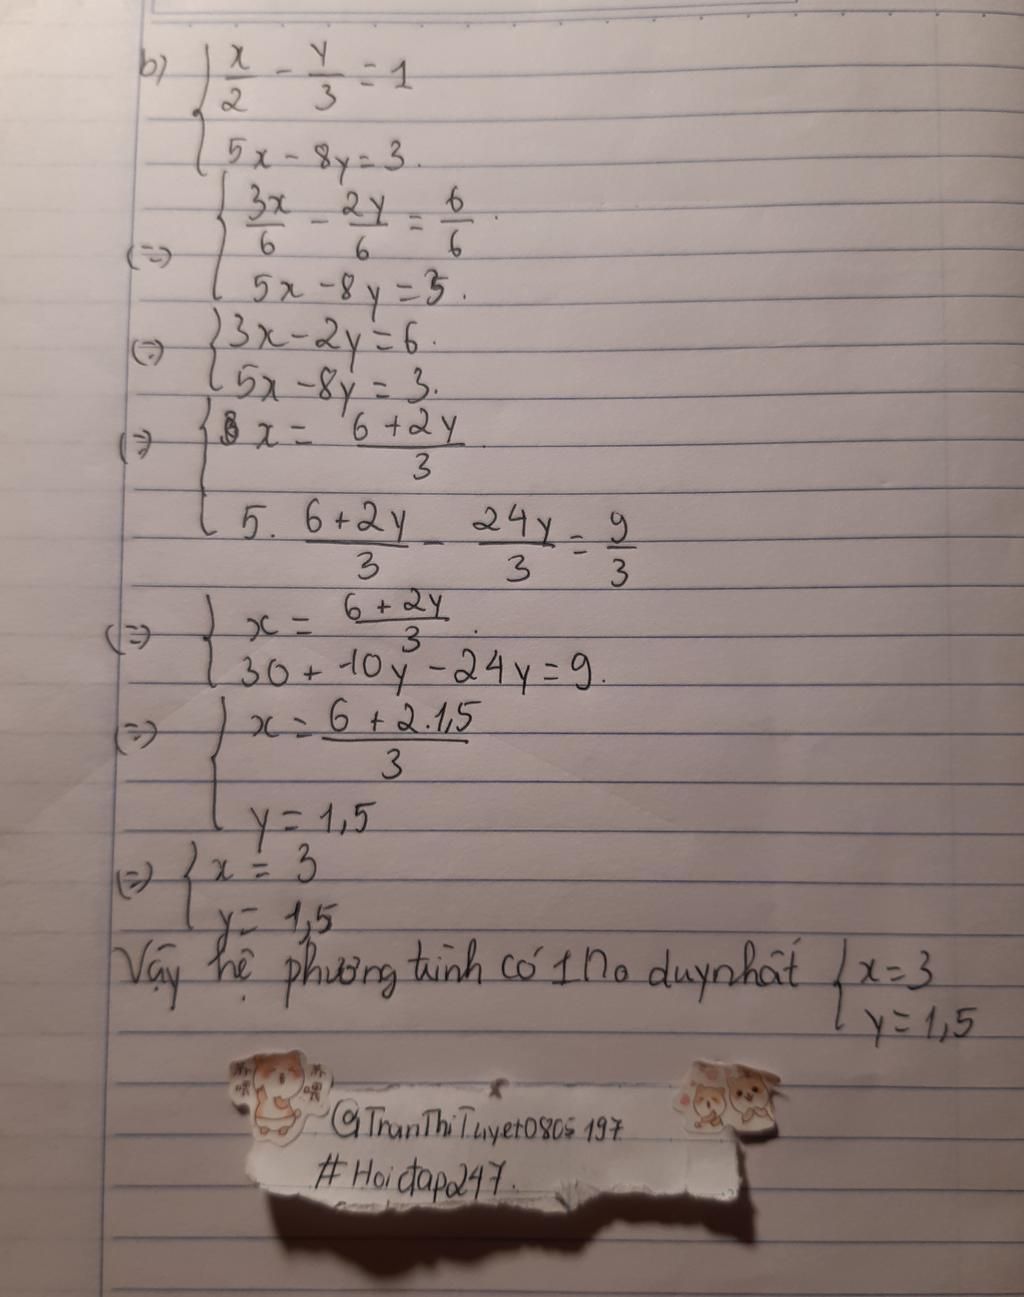 b) { x/2 - y/3 = 1
5x - 8y = 3.
(=) { 3x/6 - 2y/6 = 6/6.
5x - 8y = 3.
(=) { 3x - 2y = 6.
5x - 8y = 3.
(=) { x = (6 + 2y)/3
5. (6 + 2y)/3 - 24y/3 = 9/3
(=) { x = (6 + 2y)/3.
30 + 10y - 24y = 9.
(=) { x = (6 + 2.1,5)/3
y = 1,5
(=) { x = 3
y = 1,5
Vậy hệ phương trình có 1 no duy nhất { x = 3
y = 1,5
@TranThiTuyet0805197
#Hoidap247.